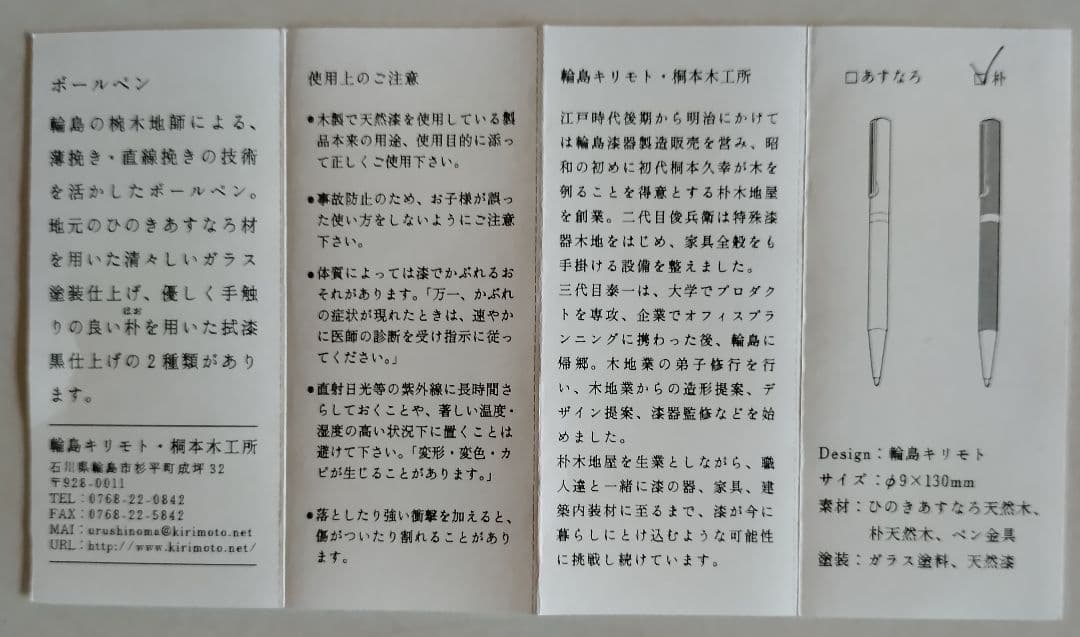 ボールペン
輪島の椀木地師による、
薄挽き・直線挽きの技術
を活かしたボールペン。
地元のひのきあすなろ材
を用いた清々しいガラス
塗装仕上げ、優しく手触
りの良い朴を用いた拭漆
ほお
黒仕上げの2種類があり
ます。
輪島キリモト・桐本木工所
石川県輪島市杉平町成坪32
〒928-0011
TEL：0768-22-0842
FAX：0768-22-5842
MAI：urushinoma@kirimoto.net
URL：http://www.kirimoto.net/
使用上のご注意
●木製で天然漆を使用している製
品本来の用途、使用目的に添っ
て正しくご使用下さい。
●事故防止のため、お子様が誤っ
た使い方をしないようにご注意
下さい。
●体質によっては漆でかぶれるお
それがあります。「万一、かぶれ
の症状が現れたときは、速やか
に医師の診断を受け指示に従っ
てください。」
●直射日光等の紫外線に長時間さ
らしておくことや、著しい温度・
湿度の高い状況下に置くことは
避けて下さい。「変形・変色・カ
ビが生じることがあります。」
●落としたり強い衝撃を加えると、
傷がついたり割れることがあり
ます。
輪島キリモト・桐本木工所
江戸時代後期から明治にかけて
は輪島漆器製造販売を営み、昭
和の初めに初代桐本久幸が木を
刳ることを得意とする朴木地屋
を創業。二代目俊兵衛は特殊漆
器木地をはじめ、家具全般をも
手掛ける設備を整えました。
三代目泰一は、大学でプロダク
トを専攻、企業でオフィスプラ
ンニングに携わった後、輪島に
帰郷。木地業の弟子修行を行
い、木地業からの造形提案、デ
ザイン提案、漆器監修などを始
めました。
朴木地屋を生業としながら、職
人達と一緒に漆の器、家具、建
築内装材に至るまで、漆が今に
暮らしにとけ込むような可能性
に挑戦し続けています。
□あすなろ
☑朴
Design：輪島キリモト
サイズ：φ9×130mm
素材：ひのきあすなろ天然木、
朴天然木、ペン金具
塗装：ガラス塗料、天然漆